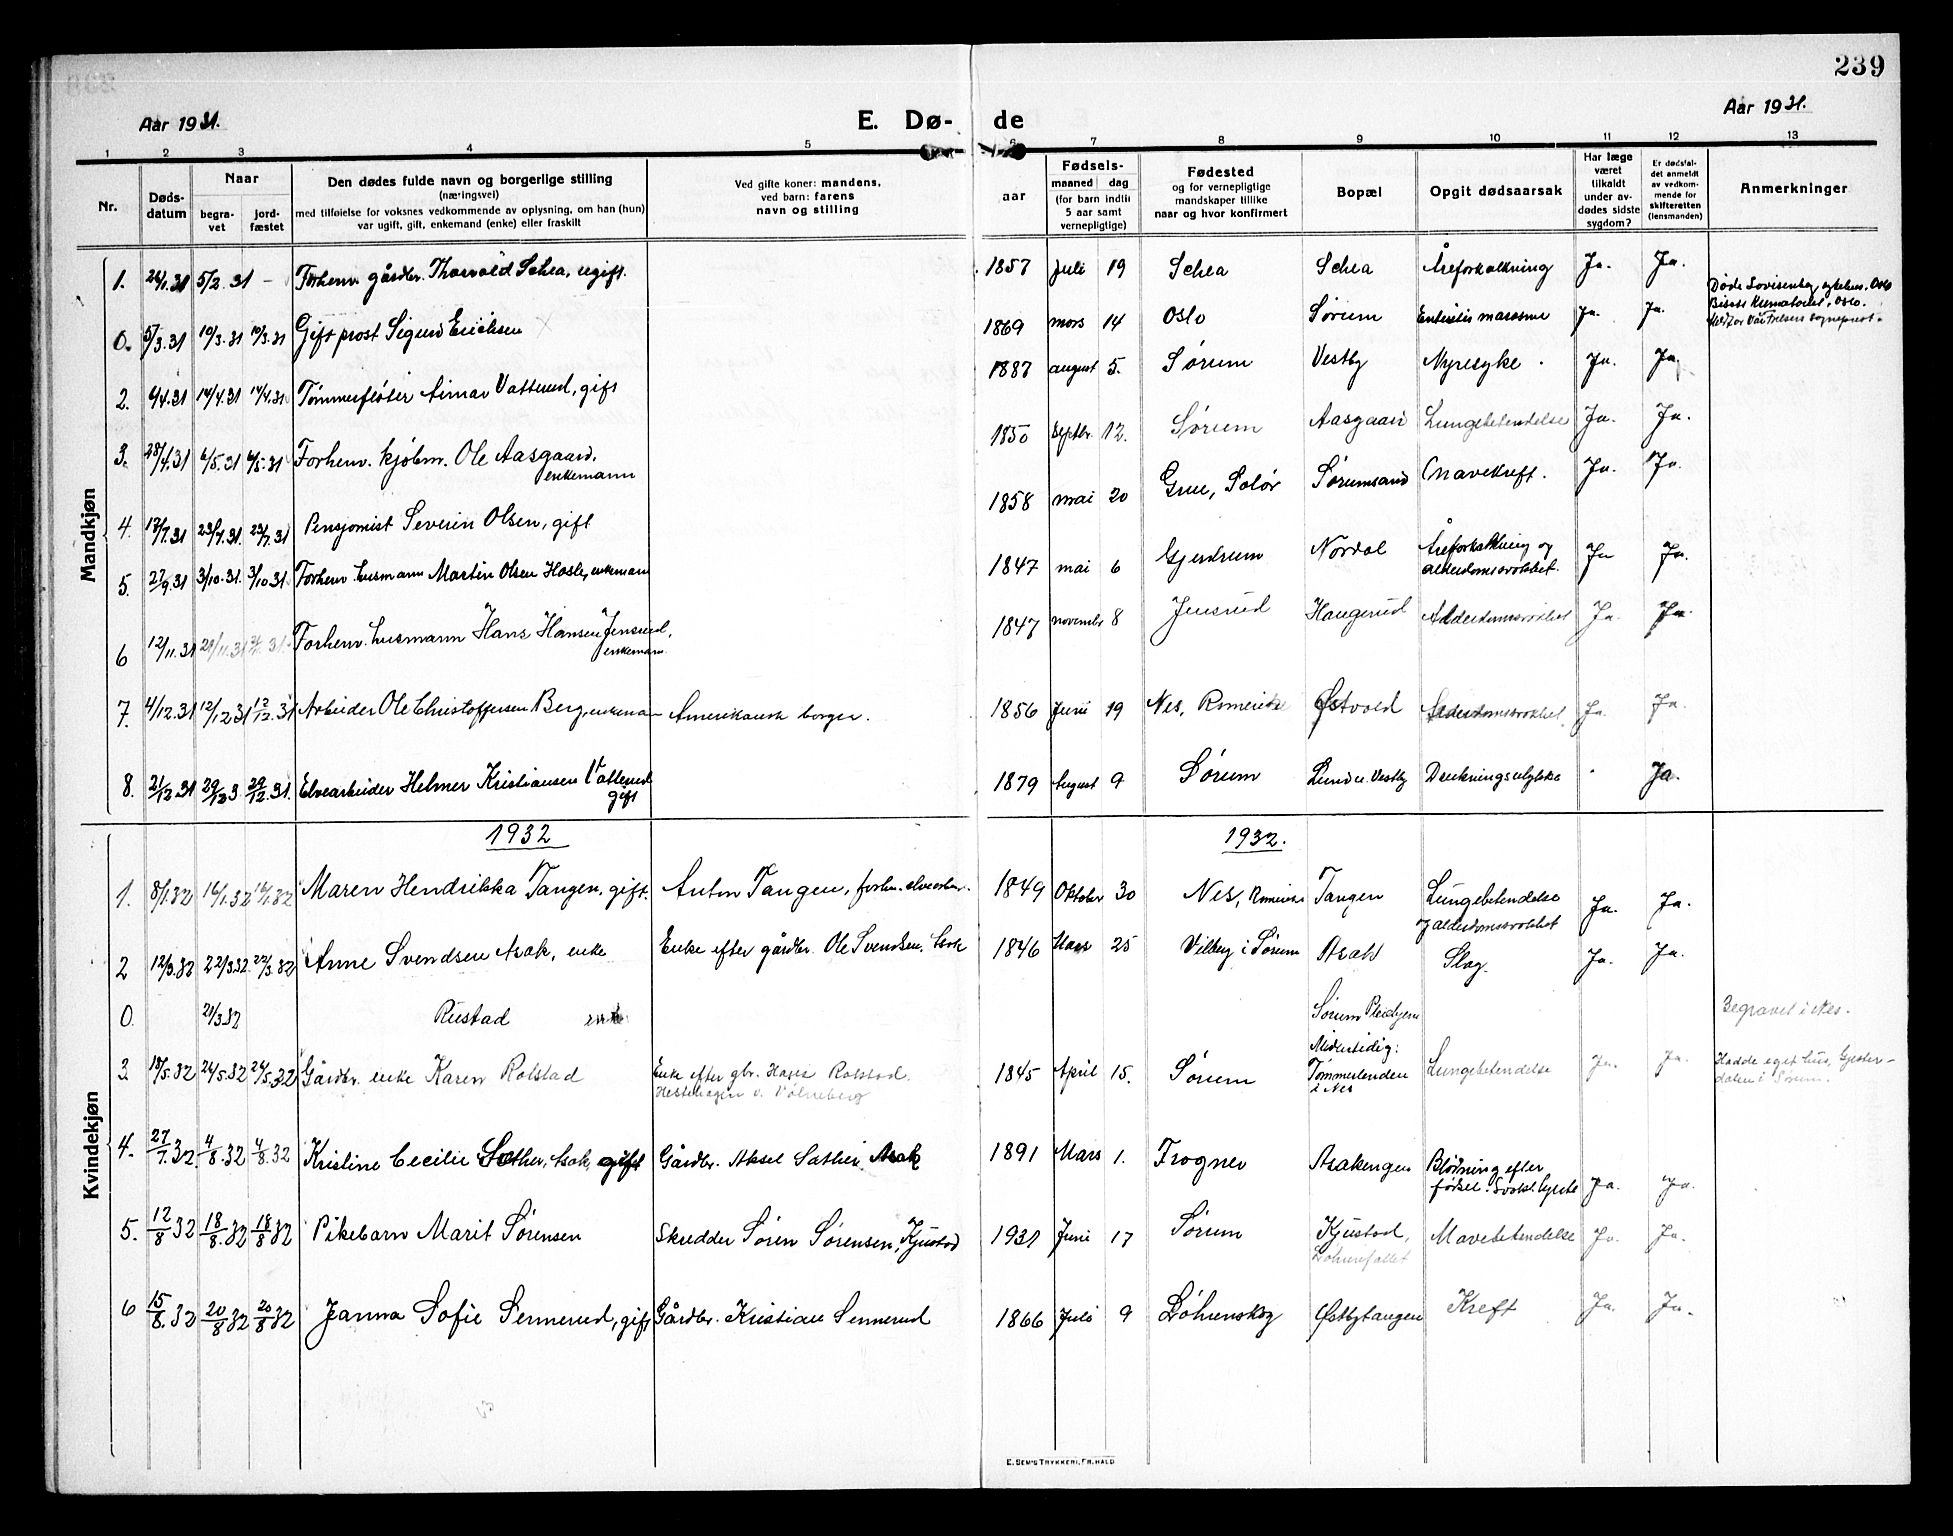 239
Aar 1931.
E. Dø-
de
Aar 1931.
1 2 3 4 5 6 7 8 9 10 11 12 13
Nr.
Døds-
datum
Naar
begra-
vet
jord-
fæstet
Den dødes fulde navn og borgerlige stilling
(næringsvei)
med tilføielse for voksnes vedkommende av oplysning, om han (hun)
var ugift, gift, enkemand (enke) eller fraskilt
Ved gifte koner: mandens,
ved barn: farens
navn og stilling
aar
Fødsels-
maaned dag
(for barn indtil
5 aar samt
vernepligtige)
Fødested
og for vernepligtige
mandskaper tillike
naar og hvor konfirmert
Bopæl
Opgit dødsaarsak
Har læge
været
tilkaldt
under av-
dødes sidste
sygdom?
Er dødsfal-
det anmeldt
av vedkom-
mende for
skifteretten
(lensmanden)
Anmerkninger
Mandkjøn
1. 26/1.31 5/2 31 - Forhenv. gårdbr. Thorvald Schea, ugift. 1857 Juli 19 Schea Schea Åreforkalkning Ja. Ja.
0. 5/3.31 10/3.31 10/3.31 Gift prost Sigurd Erichsen 1869 mars 14 Oslo Sørum Enteritis marasme Ja. Ja.
Døde Lovisenberg sykehus, Oslo
Bisatt Krematoriet, Oslo.
Ved for Vår Frelsers sogneprest.
2. 9/4.31 14/4.31 14/4.31 Tømmerfløter Einar Vatterud, gift 1887 august 5. Sørum Vestby Nyresyke. Ja. Ja.
3. 28/4.31 6/5.31 6/5.31 Forhenv. kjøbm. Ole Aasgaard,
enkemann 1850 septbr. 12. Sørum Aasgaard Lungebetendelse Ja. Ja.
4. 17/7.31 23/7.31. 23/7.31 Pensjonist Severin Olsen, gift 1858 mai 20 Grue, Solør Sørumsand Mavekreft. Ja. Ja.
5. 27/9.31 3/10.31. 3/10.31 Forhenv. husmann Martin Olsen Hasle, enkemann 1847 mai 6 Gjerdrum Nordal Åreforkalkning og
alderdomssvakhet. Ja Ja.
6 12/11.31 21/11.31 Forhenv. husmann Hans Hansen Jensrud,
enkemann. 1847 novembr 8 Jensrud Haugerud Alderdomssvakhet Ja. Ja.
7. 4/12.31 12/12.31 12/12.31 Arbeider Ole Christoffersen Berg, enkema- Amerikansk borger. 1856 Juni 19 Nes, Romerike Østvold Alderdomssvakhet, Ja. Ja.
8. 21/12.31 29/12.3 29/12.31. Elvearbeider Helmer Kristiansen Vatterud
gift 1879 August 9 Sørum Lund u. Vestby Drukningsulykke Ja.
Kvindekjøn
1932
1932.
1. 8/1.32 16/1.32 16/1.32 Maren Hendrikka Tangen, gift. Anton Tangen, forhv. elvearbr. 1849 Oktober 30 Nes, Romerike Tangen Lungebetendelse
og alderdomssvakhet Ja. Ja.
2 12/3.32 22/3.32. 22/3.32 Anne Svendsen Asak, enke Enke efter gårdbr. Ole Svendsen, Asak 1846 Mars 25 Vilberg i Sørum Asak Slag. Ja. Ja.
0. 21/3.32 Rustad enke Sørum Pleiehjem Begravet i Nes.
3 18/5.32 24/5.32 24/5.32 Gårdbr. enke Karen Rolstad Enke efter gbr. Hans Rolstad.
Hestehagen v. Vølneberg 1845 April 15. Sørum Midlertidig:
Tømmerlenden
i Nes Lungebetendelse Ja. Ja. Hadde eget hus, Gjester-
dalen i Sørum.
4. 27/7.32. 4/8.32 4/8.32 Kristine Cecilie Sæther, Asak, gift Gårdbr. Aksel Sæther, Asak 1891 Mars 1. Frogner Asakengen Blødning efter
fødsel. Svakt hjerte Ja. Ja.
5. 12/8 32 18/8.32 18/8 32 Pikebarn Marit Sørensen Skredder Søren Sørensen, Kjustad 1931 Juni 17 Sørum Kjustad, Mavebetendelse Ja. Ja.
6 15/8.32 20/8 32 20/8 32 Janna Sofie Sennerud, gift Gårdbr. Kristian Sennerud 1866 Juli 9 Lørenskog Østbytangen Kreft Ja. Ja.
E. SEM'S TRYKKERI, FR.HALD